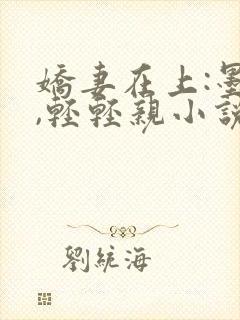 嬌妻在上:墨
,輕輕親小說
劉統海